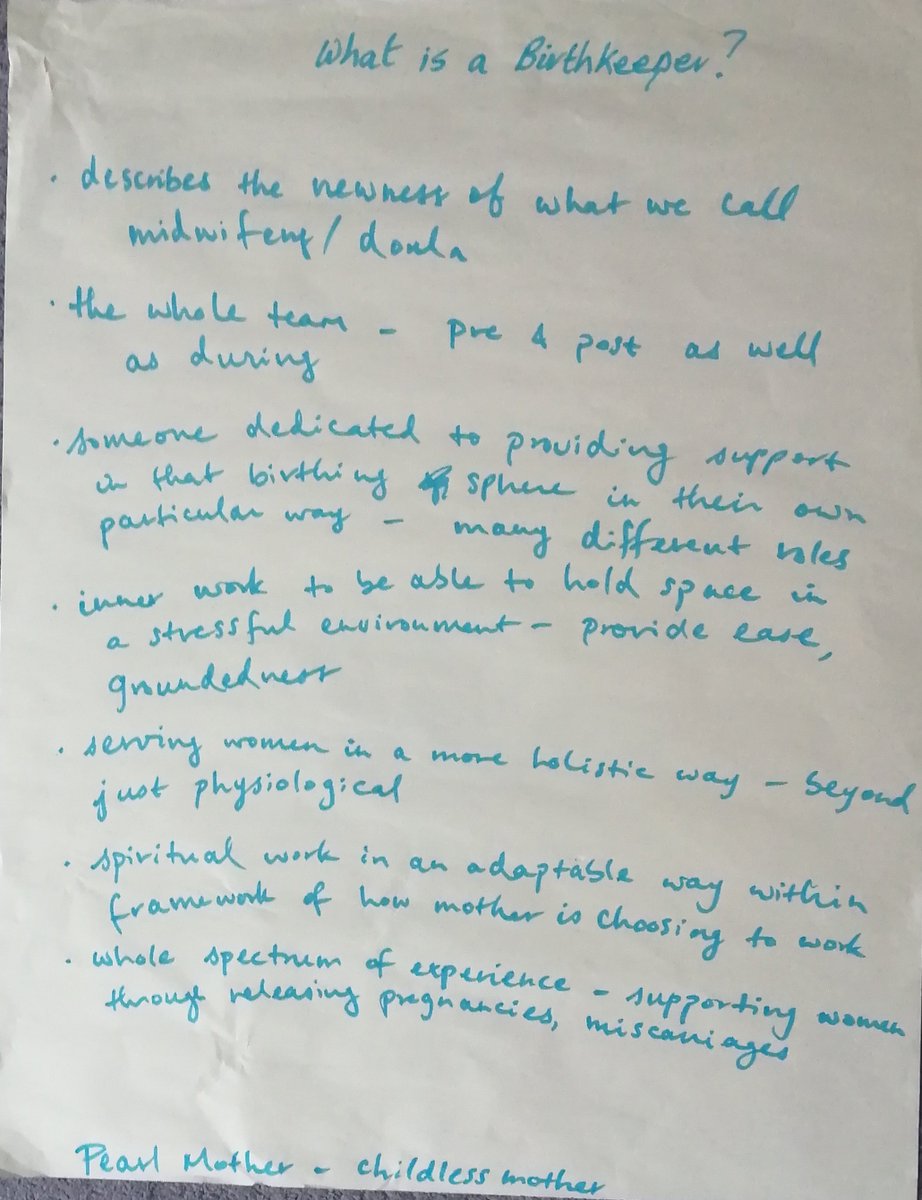 What is a Birthkeeper?
· describes the newness of what we call
midwifery / doula
· the whole team - pre & post as well
as during
· someone dedicated to providing support
in that birthing sphere in their own
particular way - many different roles
· inner work to be able to hold space in
a stressful environment - provide ease,
groundedness
· serving women in a more holistic way - beyond
just physiological
· spiritual work in an adaptable way within
framework of how mother is choosing to work
· whole spectrum of experience - supporting women
through releasing pregnancies, miscarriages
Pearl Mother - childless mother